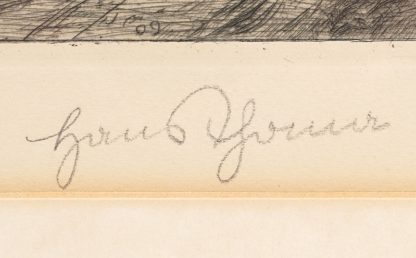 09
Hans Thoma